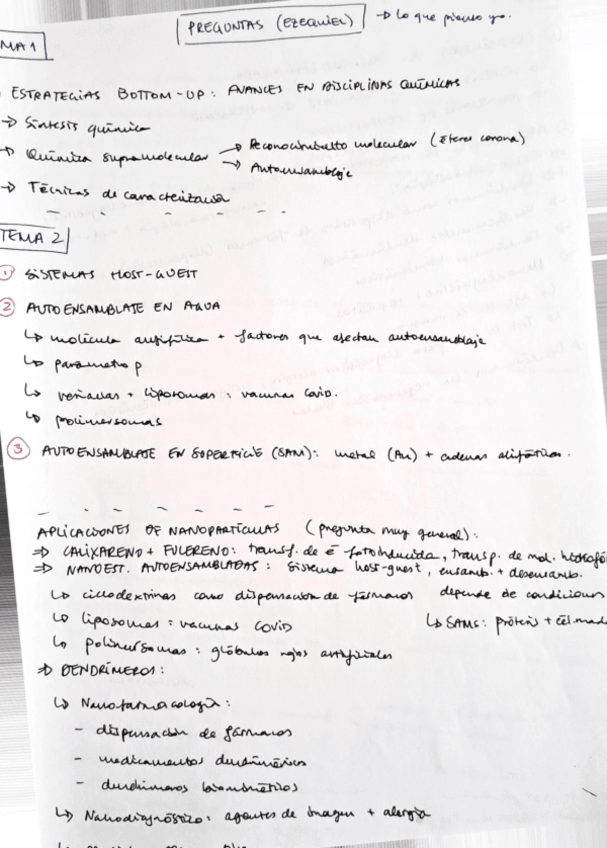 PREGUNTAS (EZEQUIEL) → Lo que pienso yo.
MA 1
ESTRATEGIAS BOTTOM-UP: AVANCES EN DISCIPLINAS QUÍMICAS
→ Síntesis química
→ Química supramolecular → Reconocimiento molecular (éteres corona)
→ Autoensamblaje
→ Técnicas de caracterización
TEMA 2
1 SISTEMAS HOST-GUEST
2 AUTOENSAMBLATE EN AGUA
↳ molécula anfifílica + factores que afectan autoensamblaje
↳ parametro p
↳ vesículas + liposomas: vacunas covid.
↳ polimersomas
3 AUTOENSAMBLATE EN SUPERFICIE (SAM): metal (Au) + cadenas alifáticas.
APLICACIONES DE NANOPARTÍCULAS (pregunta muy general):
⇒ CALIXARENO + FULERENO: transf. de e⁻ fotoinducida, transp. de mol. hidrofó
⇒ NANOEST. AUTOENSAMBLADAS: sistema host-guest, ensamb. + desensamb.
↳ ciclodextrinas como dispensación de fármacos depende de condiciones
↳ liposomas: vacunas COVID ↳ SAMs: proteís +
↳ polimersomas: glóbulos rojos artificiales
⇒ DENDRÍMEROS:
↳ Nanofarmacología:
- dispensación de fármacos
- medicamentos dendriméricos
- dendrímeros biomiméticos
↳ Nanodiagnóstico: agentes de imagen + alergia